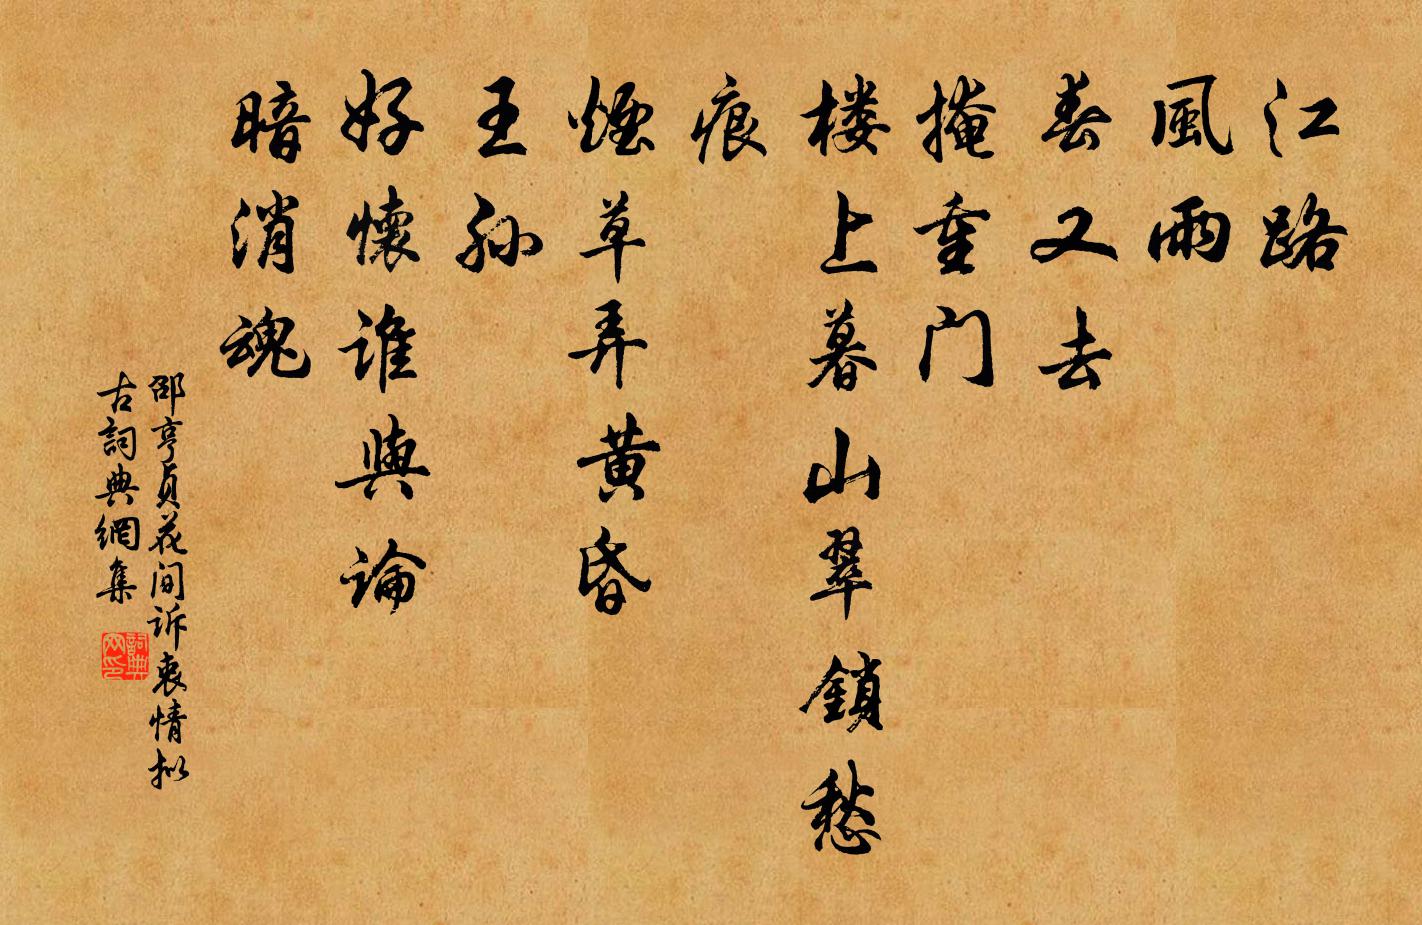 江路
風雨
春又去
掩重门
楼上暮山翠鎖愁
痕
煙草弄黄昏
王孫
好懷誰與論
暗消魂
邵亨貞花间訴衷情拟
古詞典網集
詞典网印